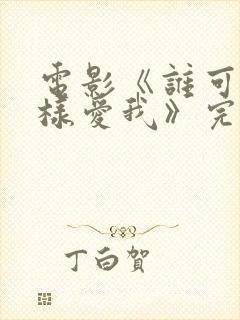 電影《誰可
樣愛我》完
丁白賀